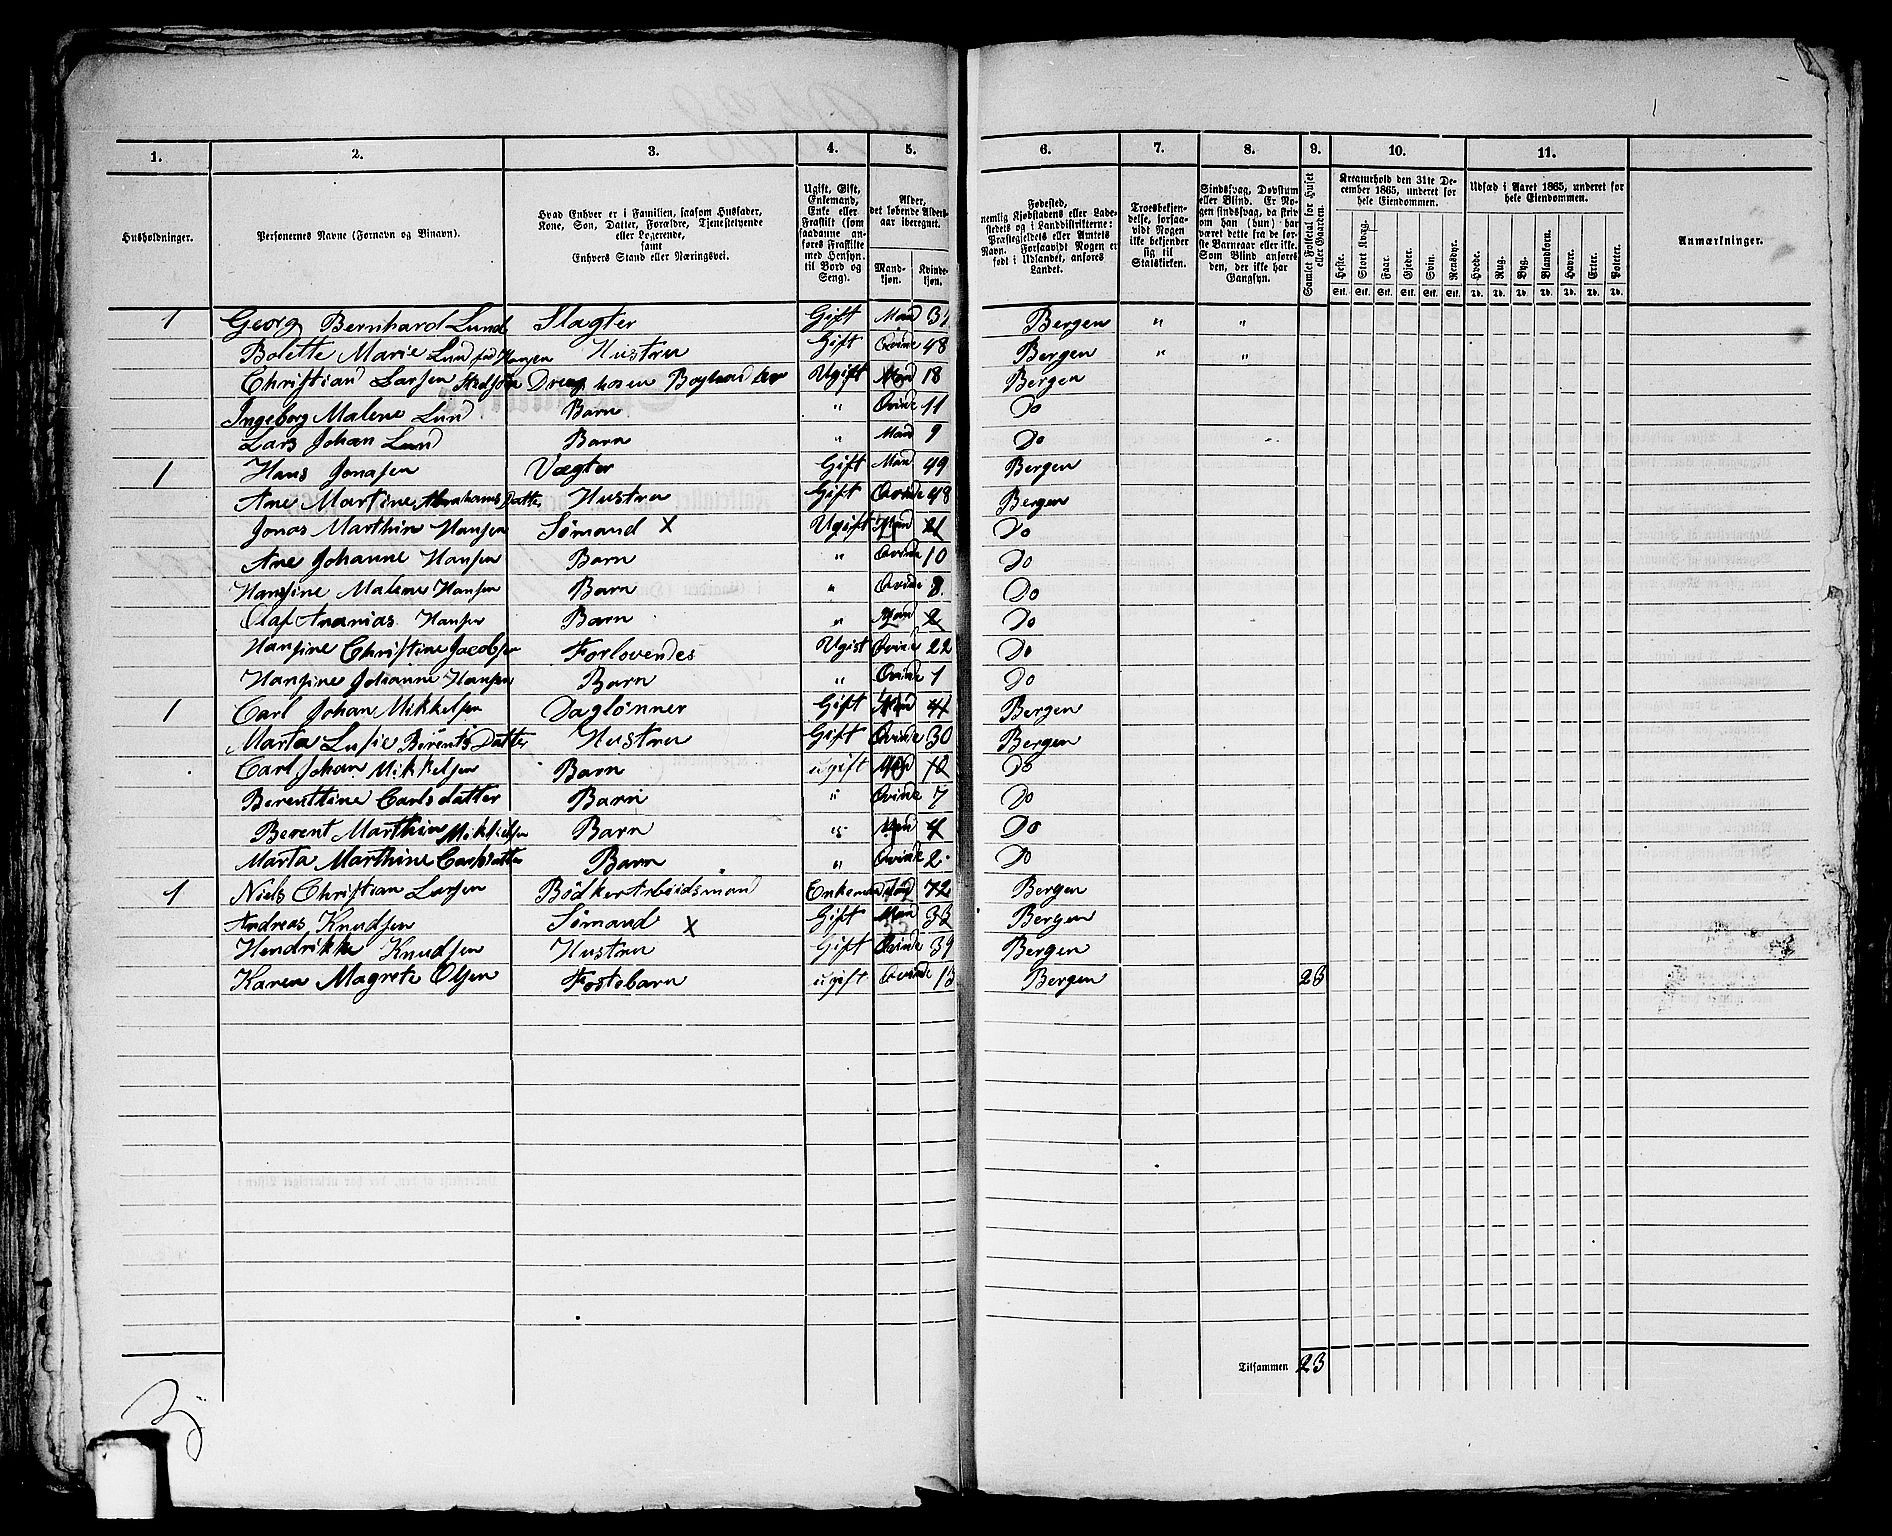 1. 2. 3. 4. 5. 6. 7. 8. 9. 10. 11.
Husholdninger.
Personernes Navne (Fornavn og Binavn).
Hvad Enhver er i Familien, saasom Husfader, Kone, Søn, Datter, Forældre, Tjenestetyende eller Logerende, samt Enhvers Stand eller Næringsvei.
Ugift, Gift, Enkemand, Enke eller Fraskilt (som saadanne anføres Fraskilte med Hensyn til Bord og Seng).
Alder, det løbende Aldersaar iberegnet.
Mandkjøn. Kvindekjøn.
Fødested, nemlig Kjøbstadens eller Ladestedets og i Landdistrikterne: Præstegjeldets eller Amtets Navn. Forsaavidt Nogen er født i Udlandet, anføres Landet.
Troesbekjendelse, forsaavidt Nogen ikke bekjender sig til Statskirken.
Sindssvag, Døvstum eller Blind. Er Nogen sindssvag, da skrives om han (hun) har været dette fra de første Barneaar eller ikke. Som Blind anføres den, der ikke har Gangsyn.
Samlet Folketal for Huset eller Gaarden.
Kreaturhold den 31te December 1865, underet for hele Eiendommen.
Heste. Stort Qvæg. Faar. Gjeder. Svin. Rensdyr.
Stk. Stk. Stk. Stk. Stk. Stk.
Udsæd i Aaret 1865, underet for hele Eiendommen.
Hvede. Rug. Byg. Blandkorn. Havre. Erter. Poteter.
Td. Td. Td. Td. Td. Td. Td.
Anmærkninger.
1 Georg Bernhard Lund Slagter Gift Mand Bergen " "
Bolette Marie Lund fød Hansen Hustru Gift Qvinde 48 Bergen " "
Christian Larsen Stedsøn Dreng hosen Ugift Mand 18 Bergen
Ingeborg Malene Lund Barn " Qvinde 11 Do
Lars Johan Lund Barn " Mand 9 Do
1 Hans Jonasen Vægter Gift Mand 49 Bergen
Ane Martine Abrahams Datter Hustru Gift Qvinde 48 Bergen
Jonas Marthin Hansen Sømand X Ugift Mand 21 Do
Ane Johanne Hansen Barn " Qvinde 10 Do
Hansine Malene Hansen Barn " Qvinde 8 Do
Olaf Ananias Hansen Barn " Mand 2 Do
Hansine Christine Jacobsen Forlovendes Ugist Qvinde 22 Do
Hansine Johanne Hansen Barn " Qvinde 1 Do
1 Carl Johan Mikkelsen Daglønner Gift Mand 41 Bergen
Marta Lusie Berents Datter Hustru Gift Qvinde 30 Bergen
Carl Johan Mikkelsen Barn ugift Mand 10 Do
Berenttine Carlsdatter Barn " Qvinde 7 Do
Berent Marthin Mikkelsen Barn " Man 4 Do
Marta Marthine Carlsdatter Barn " Qvinde 2 Do
1 Niels Christian Larsen Bødker Arbeidsmand Enkemand 72 Bergen
Andreas Knudsen Sømand X Gift Man 33 Bergen
Hendrikke Knudsen Hustru Gift Qvinde 39 Bergen
Karen Magrete Olsen Fostebarn ugift Qvinde 13 Bergen 23
Tilsammen 23